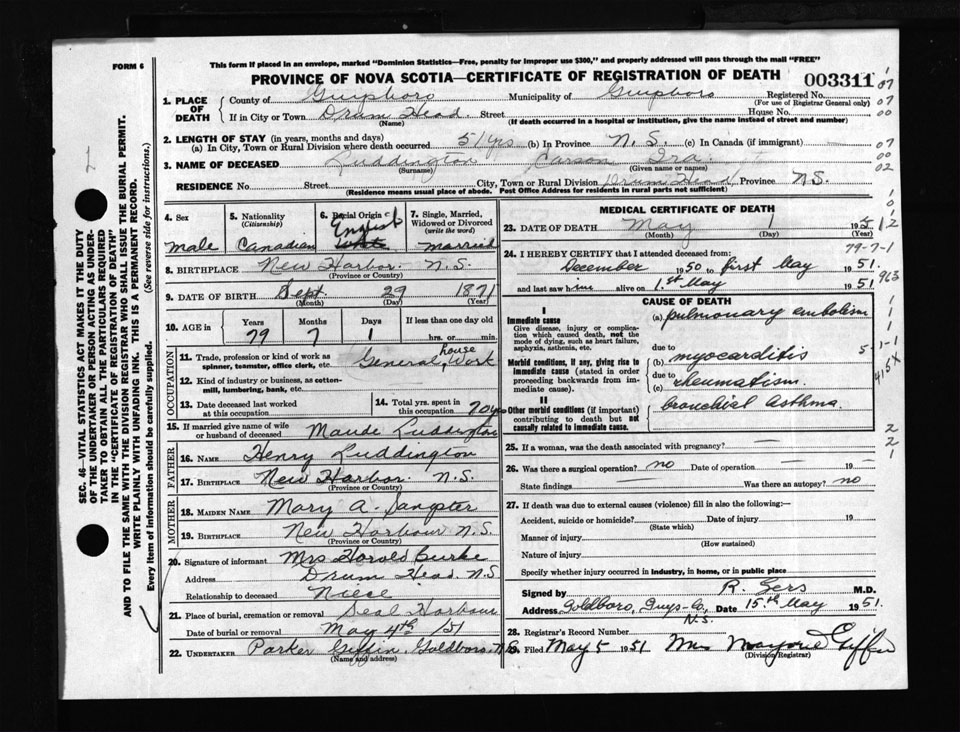 FORM 6
This form if placed in an envelope, marked "Dominion Statistics—Free, penalty for improper use $300," and properly addressed will pass through the mail "FREE"
PROVINCE OF NOVA SCOTIA—CERTIFICATE OF REGISTRATION OF DEATH 003311
1. PLACE OF DEATH
County of Guysboro Municipality of Guysboro Registered No.
(For use of Registrar General only)
If in City or Town Drum Head Street House No.
(Name) (If death occurred in a hospital or institution, give the name instead of street and number)
2. LENGTH OF STAY (in years, months and days)
(a) In City, Town or Rural Division where death occurred 51 yrs (b) In Province N.S. (c) In Canada (if immigrant)
3. NAME OF DECEASED Luddington Carson Ira
(Surname) (Given name or names)
RESIDENCE No. Street City, Town or Rural Division Drum Head Province N.S.
(Residence means usual place of abode. Post Office Address for residents in rural parts not sufficient)
4. Sex male
5. Nationality (Citizenship) Canadian
6. Racial Origin English
7. Single, Married, Widowed or Divorced (write the word) Married
8. BIRTHPLACE New Harbor. N.S.
(Province or Country)
9. DATE OF BIRTH Sept 29 1871
(Month) (Day) (Year)
10. AGE in Years Months Days If less than one day old
79 7 1 hrs. or min.
OCCUPATION
11. Trade, profession or kind of work as spinner, teamster, office clerk, etc. General house Work
12. Kind of industry or business, as cotton-mill, lumbering, bank, etc.
13. Date deceased last worked at this occupation
14. Total yrs. spent in this occupation 70 yrs
15. If married give name of wife or husband of deceased Maude Luddington
FATHER
16. NAME Henry Luddington
17. BIRTHPLACE New Harbor. N.S.
(Province or Country)
MOTHER
18. MAIDEN NAME Mary A. Sangster
19. BIRTHPLACE New Harbour N.S.
(Province or Country)
20. Signature of informant Mrs Harold Burke
Address Drum Head. N.S
Relationship to deceased Niece
21. Place of burial, cremation or removal Seal Harbour
Date of burial or removal May 4th /51
22. UNDERTAKER Parker Giffin, Goldboro. N.S.
(Name and address)
MEDICAL CERTIFICATE OF DEATH
23. DATE OF DEATH May 1 1951
(Month) (Day) (Year)
79-7-1
24. I HEREBY CERTIFY that I attended deceased from:
December 1950 to first May 1951.
and last saw him alive on 1.st May 1951
CAUSE OF DEATH
I
Immediate cause (a) pulmonary embolism
Give disease, injury or complication which caused death, not the mode of dying, such as heart failure, asphyxia, asthenia, etc.
due to
Morbid conditions, if any, giving rise to immediate cause (stated in order proceeding backwards from immediate cause). (b) myocarditis
due to
(c) rheumatism.
II
Other morbid conditions (if important) contributing to death but not causally related to immediate cause. bronchial asthma.
25. If a woman, was the death associated with pregnancy? —
26. Was there a surgical operation? no Date of operation — 19
State findings — Was there an autopsy? no
27. If death was due to external causes (violence) fill in also the following:—
Accident, suicide or homicide? Date of injury 19
(State which)
Manner of injury
(How sustained)
Nature of injury
Specify whether injury occurred in industry, in home, or in public place
Signed by R. Gers M.D.
Address Goldboro, Guys-Co, N.S. Date 15th May 1951
28. Registrar's Record Number
29. Filed May 5 1951 Mrs Marjorie Giffin
(Division Registrar)
SEC. 46—VITAL STATISTICS ACT MAKES IT THE DUTY OF THE UNDERTAKER OR PERSON ACTING AS UNDERTAKER TO OBTAIN ALL THE PARTICULARS REQUIRED IN THE "CERTIFICATE OF REGISTRATION OF DEATH" AND TO FILE THE SAME WITH THE DIVISION REGISTRAR WHO SHALL ISSUE THE BURIAL PERMIT.
WRITE PLAINLY WITH UNFADING INK. THIS IS A PERMANENT RECORD.
Every item of information should be carefully supplied. (See reverse side for instructions.)